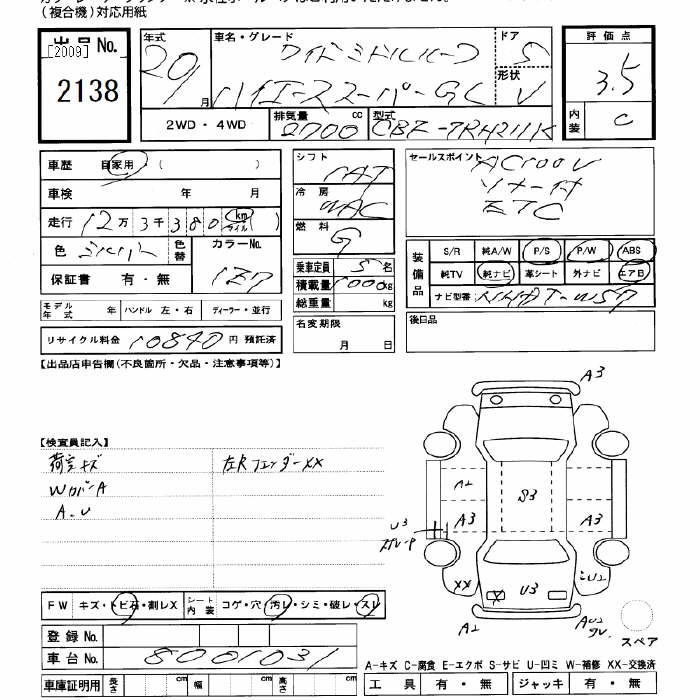 (複合機)対応用紙
出品 No.
[2009]
2138
年式 20年 月
車名・グレード ワイドミドルルーフ
ハイエーススーパーGL
ドア 5
形状 V
評価点 3.5
内装 C
2WD・4WD
排気量 2700 cc
型式 CBF-TRH211K
車歴 自家用・( )
車検 年 月
走行 12万3千380 km マイル ( )
色 シルバー 色替 カラーNo. 1E7
保証書 有・無
シフト FAT
冷房 WAC
燃料 G
乗車定員 5 名
積載量 1000 kg
総重量 kg
セールスポイント AC100V
ソナー付
ETC
装備品
S/R 純A/W P/S P/W ABS
純TV 純ナビ 革シート 外ナビ エアB
ナビ型番 NHDT-W57
モデル年式 年 ハンドル 左・右 ディーラー・並行
名変期限 月 日
後日品
リサイクル料金 10840 円 預託済
【出品店申告欄(不良箇所・欠品・注意事項等)】
【検査員記入】
荷室キズ 左Rフェンダー XX
WカバーA
A.U
A3
A2
S3
A3
A3
U3
XX
U2
X
U3
A2
スペア
FW キズ・トビ石・割レX シート内装 コゲ・穴・汚レ・シミ・破レ・スレ
登録 No.
車台 No. 8001031
A-キズ C-腐食 E-エクボ S-サビ U-凹ミ W-補修 XX-交換済
車庫証明用 長さ cm 幅 cm 高さ cm
工具 有・無 ジャッキ 有・無